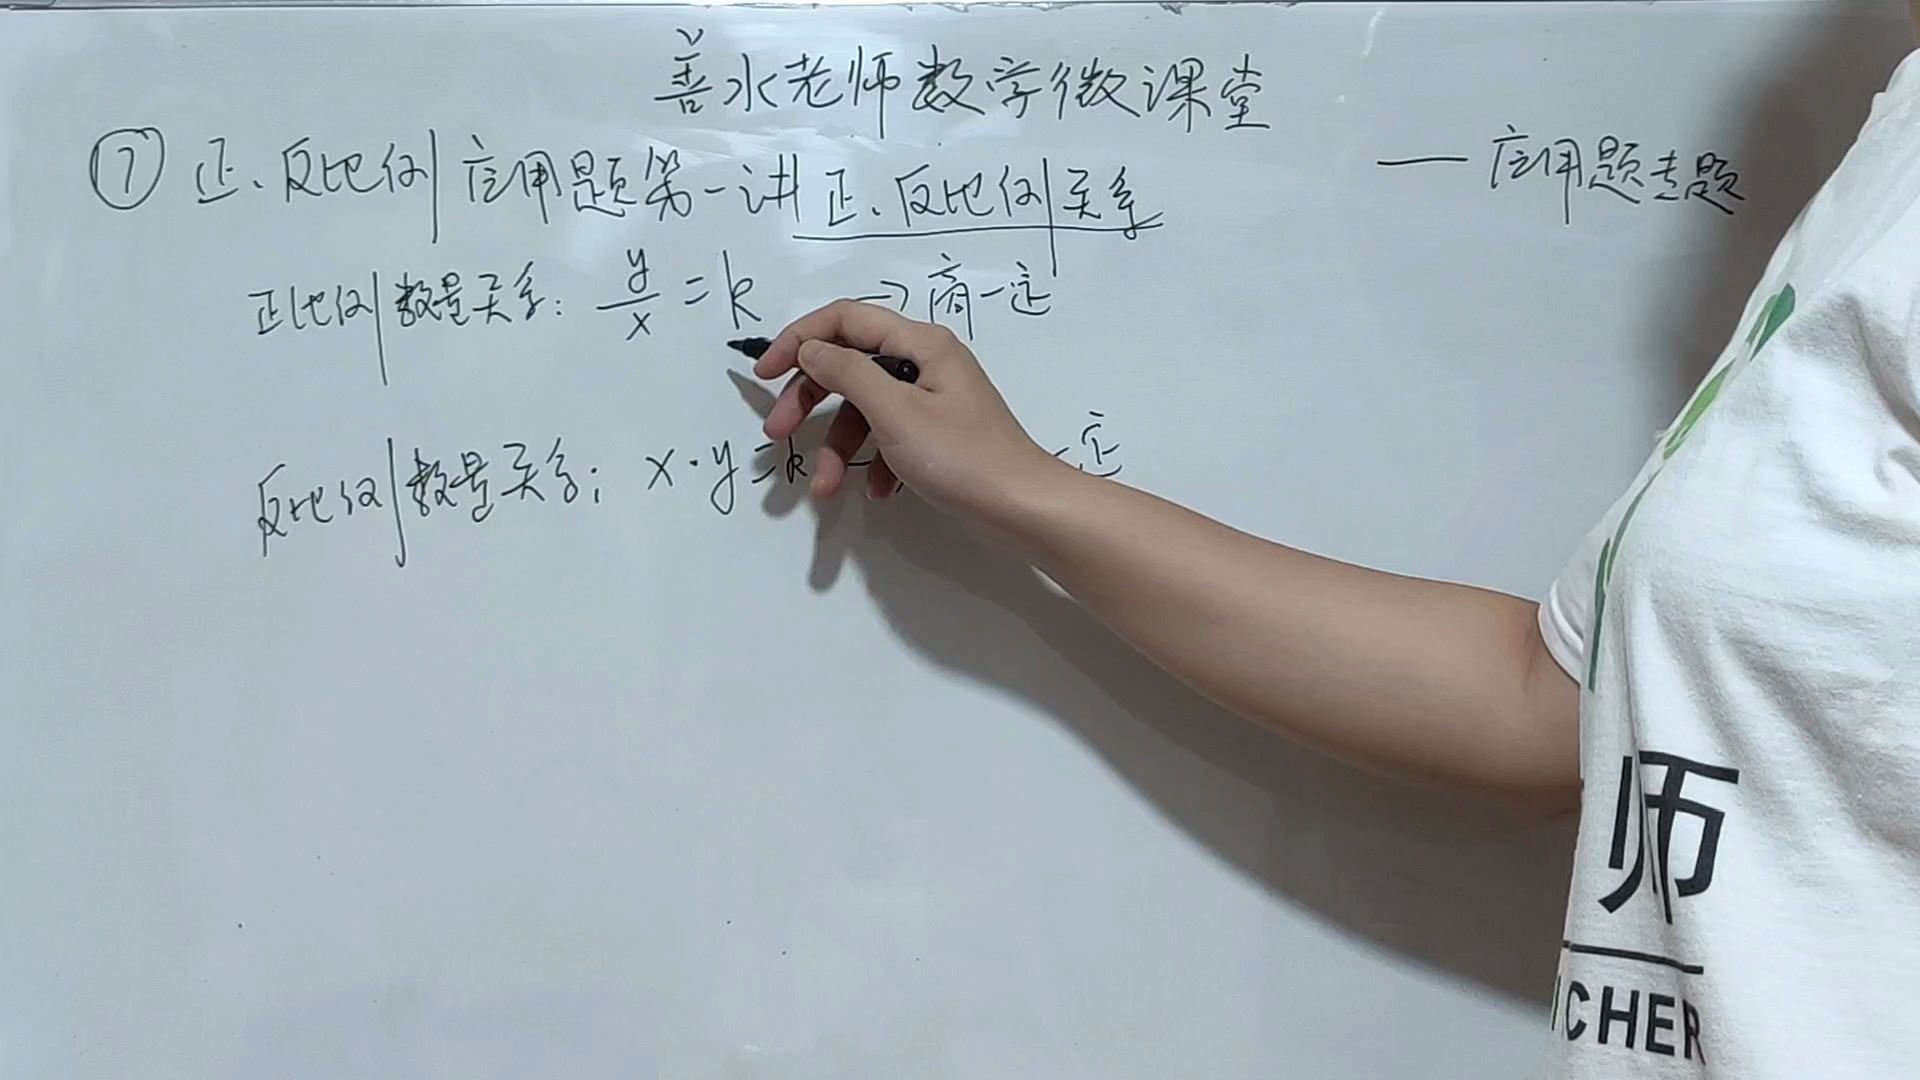 善水老师数学微课堂
——应用题专题
⑦ 正、反比例应用题第一讲 正、反比例关系
正比例数量关系: y/x = k → 商一定
反比例数量关系: x·y=k 一定
师
CHER